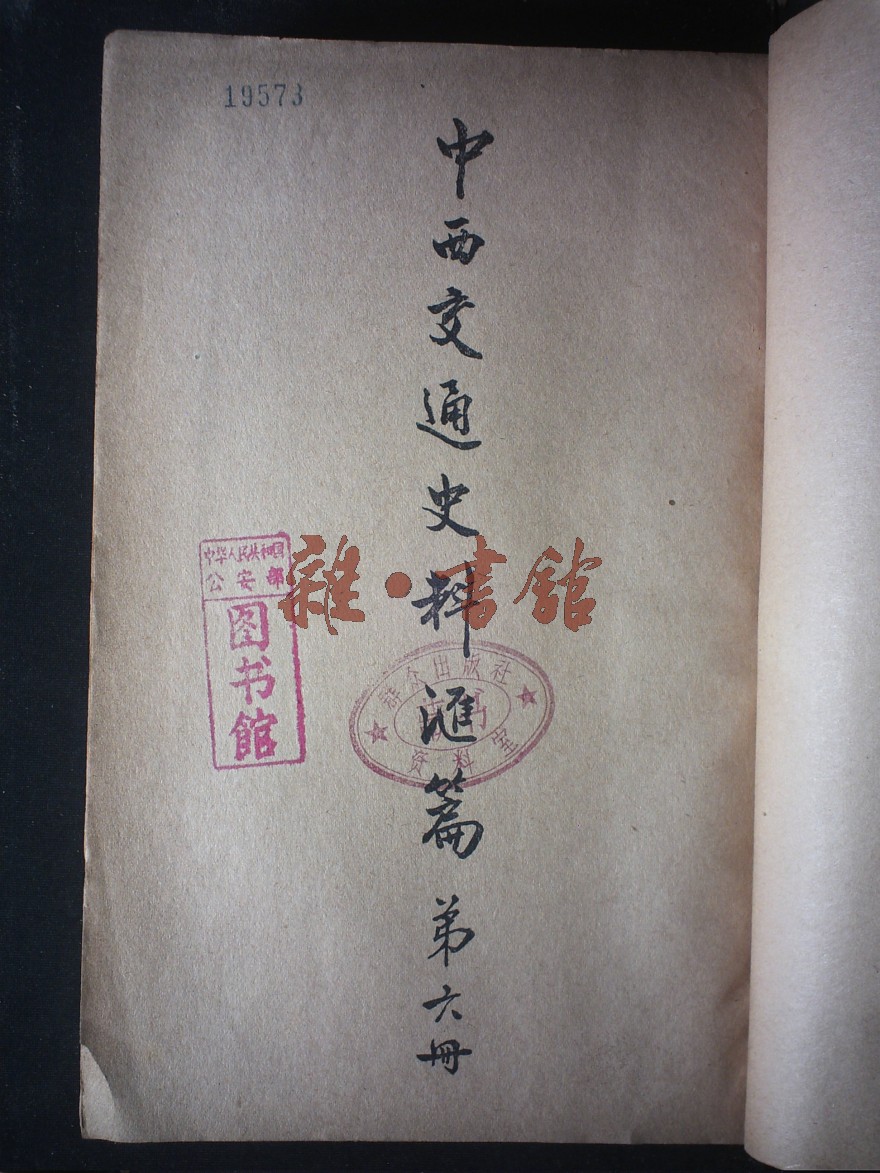 19573
中西交通史料滙篇 弟六冊
中华人民共和国
公安部
图书馆
雜·書館
群众出版社
资料室